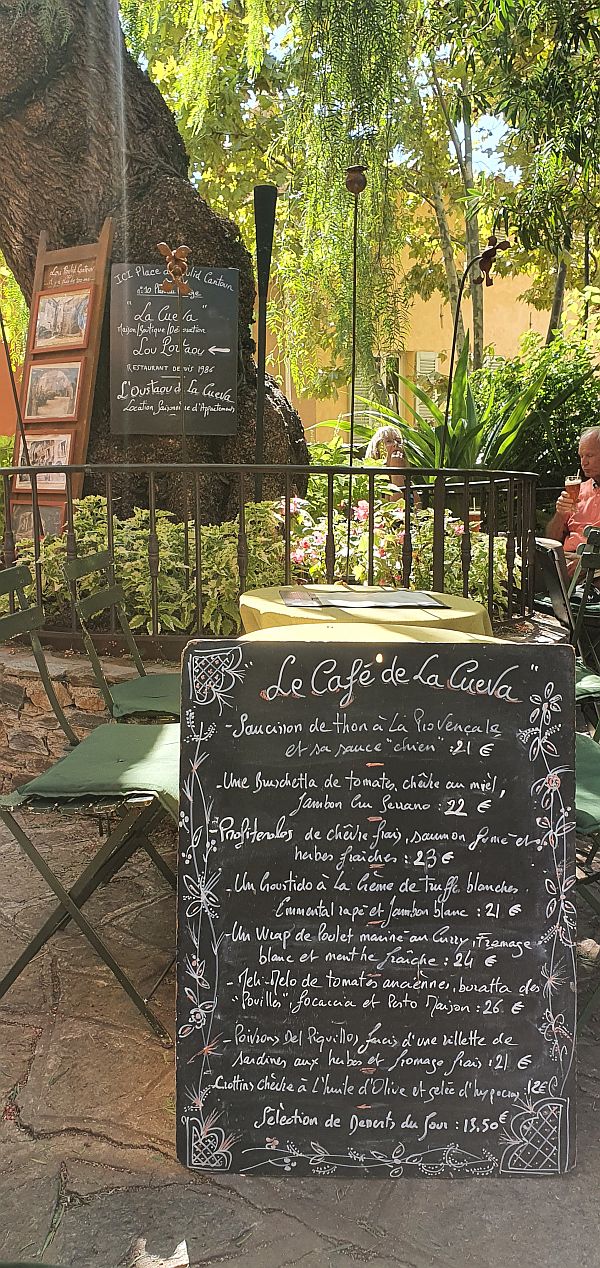 Lou Poulid Cantoun
ICI Place du Poulid Cantoun
"La Cueva"
Maison/Boutique/Déco
Lou Portaou
RESTAURANT DEPUIS 1986
L'Oustaou de La Cueva
Location Saisonnière d'Appartements
"Le Café de La Cueva"
- Saucisson de thon à La Provençale
et sa sauce "chien" : 21 €
- Une Bruschetta de tomates, chèvre au miel,
Jambon Cru Serrano : 22 €
- Profiteroles de chèvre frais, saumon fumé et
herbes fraîches : 23 €
- Un Croustido à La Crème de truffe blanches
Emmental rapé et Jambon blanc : 21 €
- Un Wrap de Poulet mariné au Curry, Fromage
blanc et menthe fraîche : 24 €
- Meli-Melo de tomates anciennes, buratta des
"Pouilles", focaccia et Pesto Maison : 26 €
- Poivrons Del Piquillos farcis d'une rillette de
sardines aux herbes et fromage frais : 21 €
- Crottins chèvre à L'huile d'Olive et gelée d'hypocras 12 €
Sélection de Desserts du Jour : 13.50 €